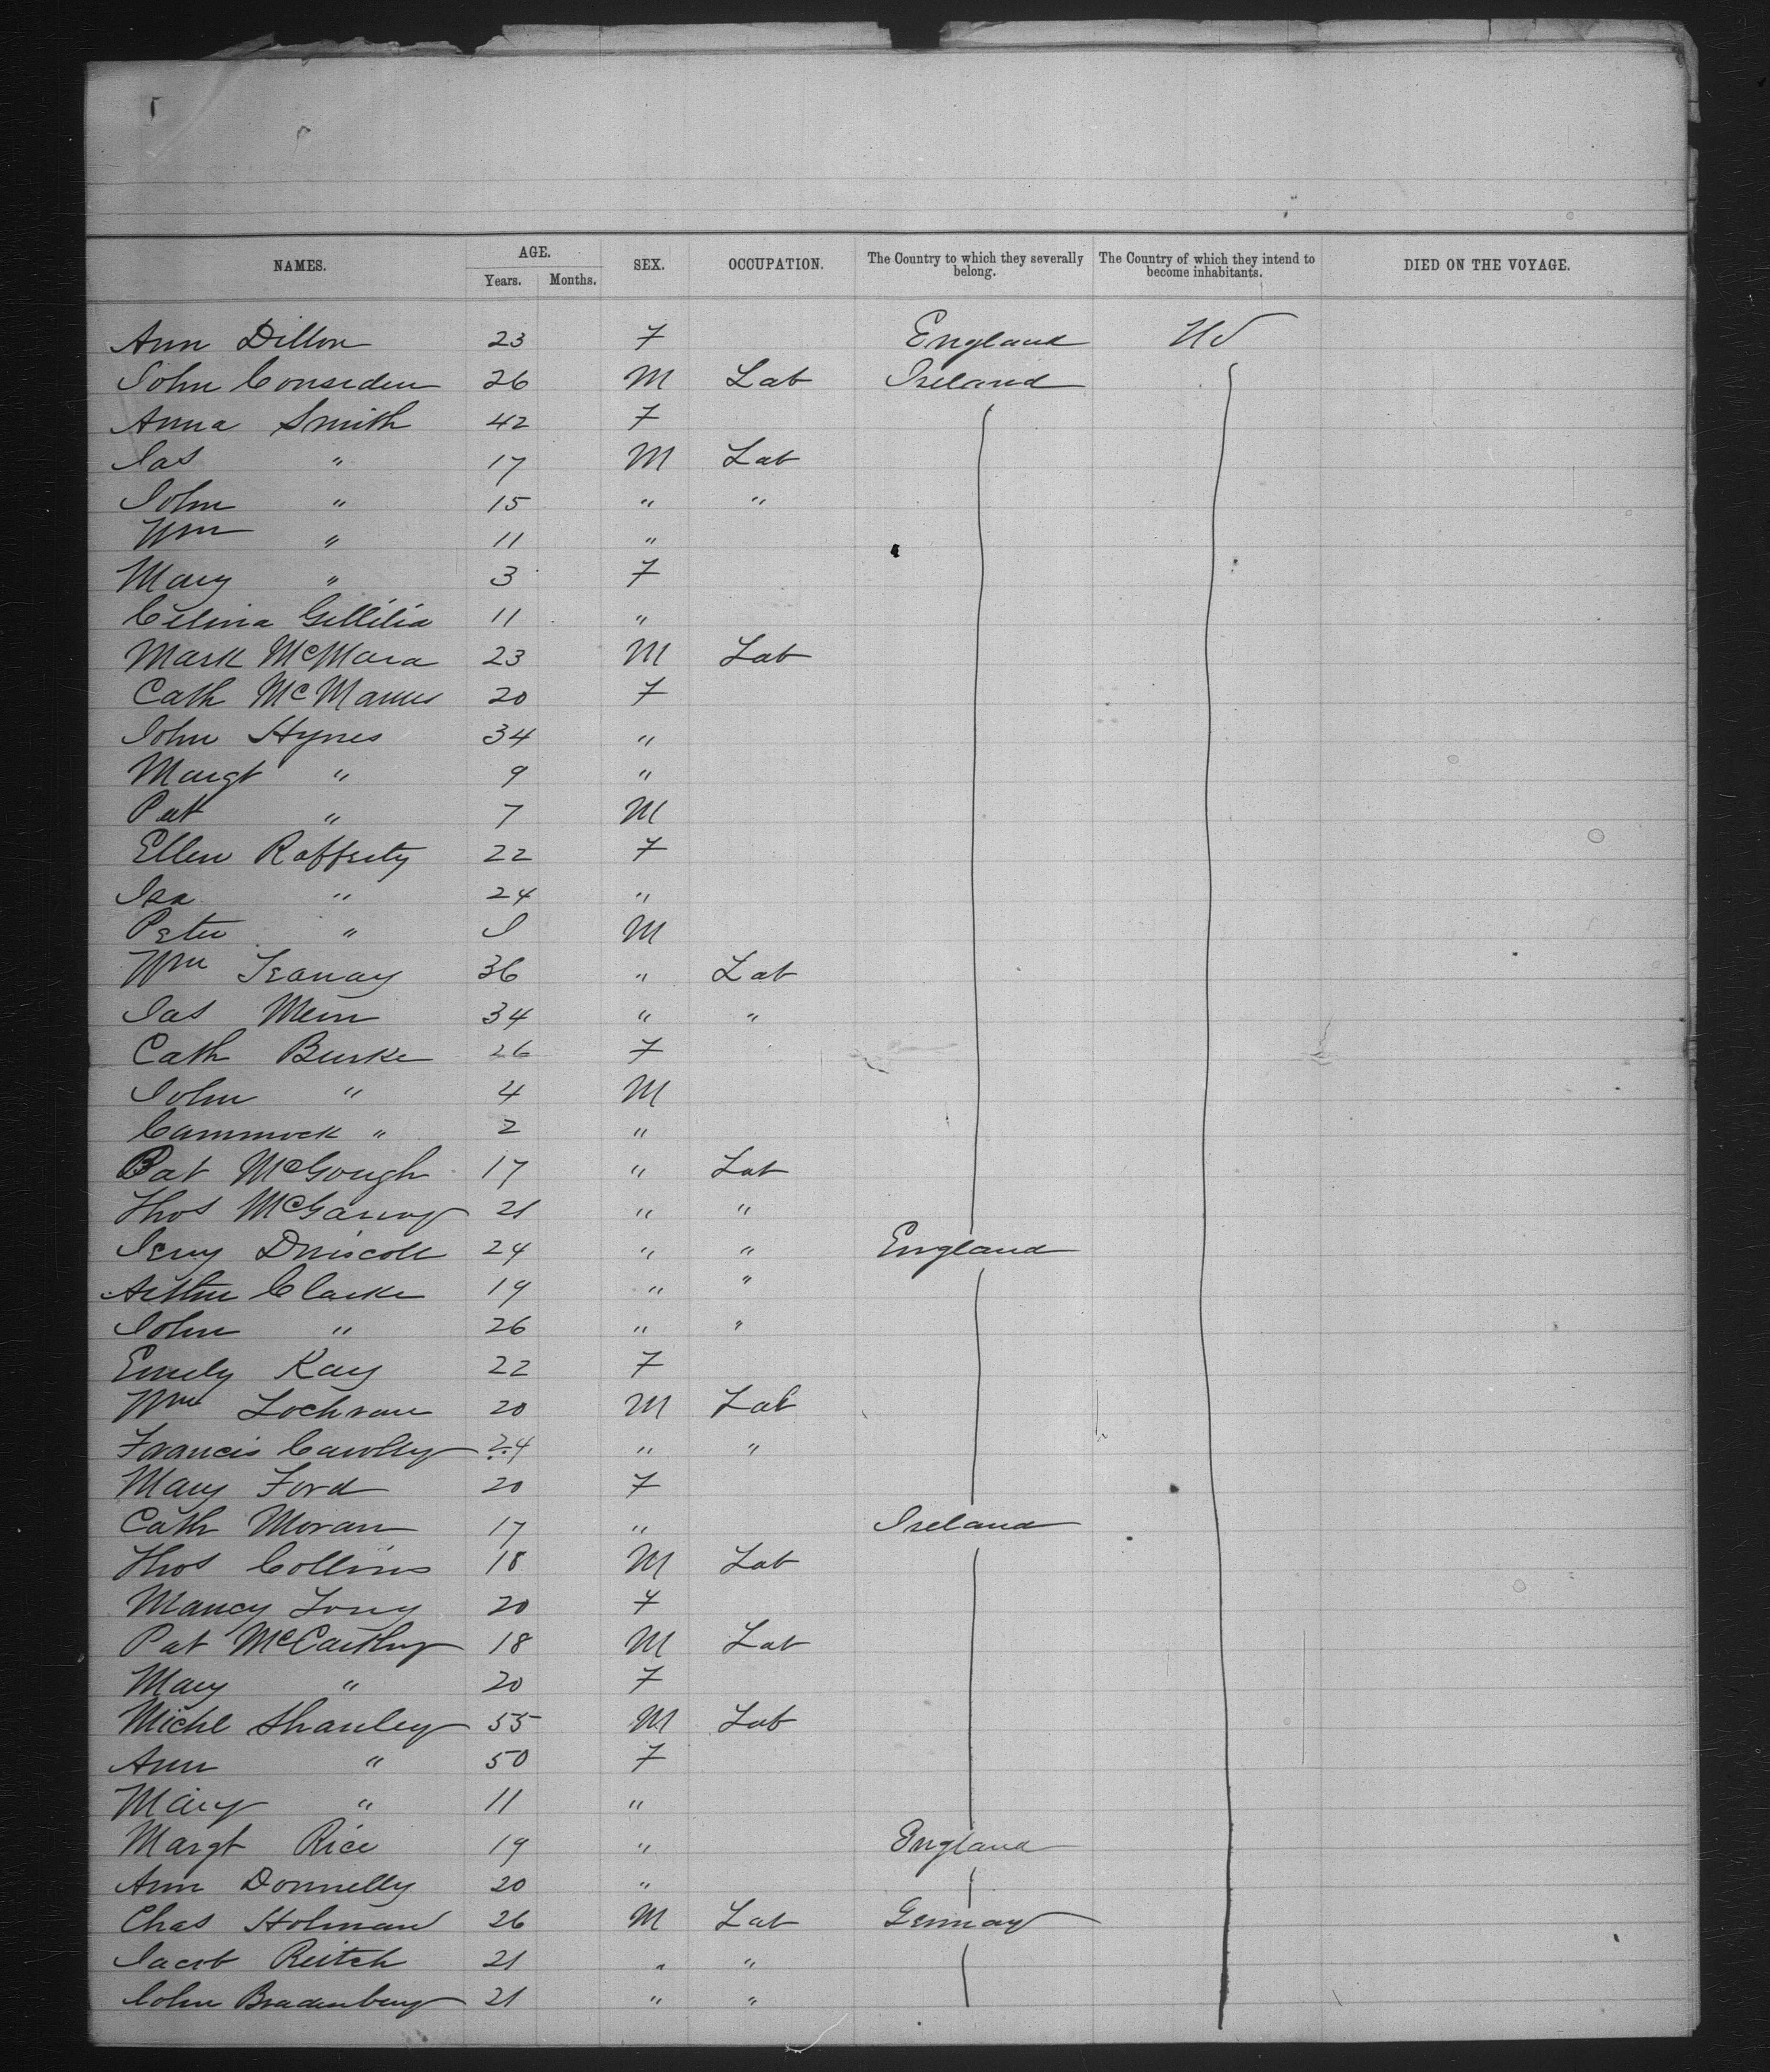 NAMES. AGE. Years. Months. SEX. OCCUPATION. The Country to which they severally belong. The Country of which they intend to become inhabitants. DIED ON THE VOYAGE.
Ann Dillon 23 F England US
John Considen 26 M Lab Ireland
Anna Smith 42 F
Jas " 17 M Lab
John " 15 " "
Wm " 11 "
Mary " 3 F
Celina Gillilia 11 "
Mark McMara 23 M Lab
Cath McManus 20 F
John Hynes 34 "
Margt " 9 "
Pat " 7 M
Ellen Rafferty 22 F
Isa " 24 "
Peter " M
Wm 36 " Lab
Jas 34 " "
Cath Burke 26 F
John " 4 M
Cammock " 2 "
Pat McGough 17 " Lab
Thos McGarvey 21 " "
Jerry Driscoll 24 " " England
Arthur Clarke 19 " "
John " 26 " "
Emily Kay 22 F
Wm Lochrane 20 M Lab
Francis Cawlly 24 " "
Mary Ford 20 F
Cath Moran 17 " Ireland
Thos Collins 18 M Lab
Mancy Tony 20 F
Pat McCarthy 18 M Lab
Mary " 20 F
Michl Shanley 55 M Lab
Ann " 50 F
Mary " 11 "
Margt Rice 19 " England
Ann Donnelly 20 "
Chas Holman 26 M Lab Germay
Jacob Reitch 21 " "
John Bradenburg 21 " "